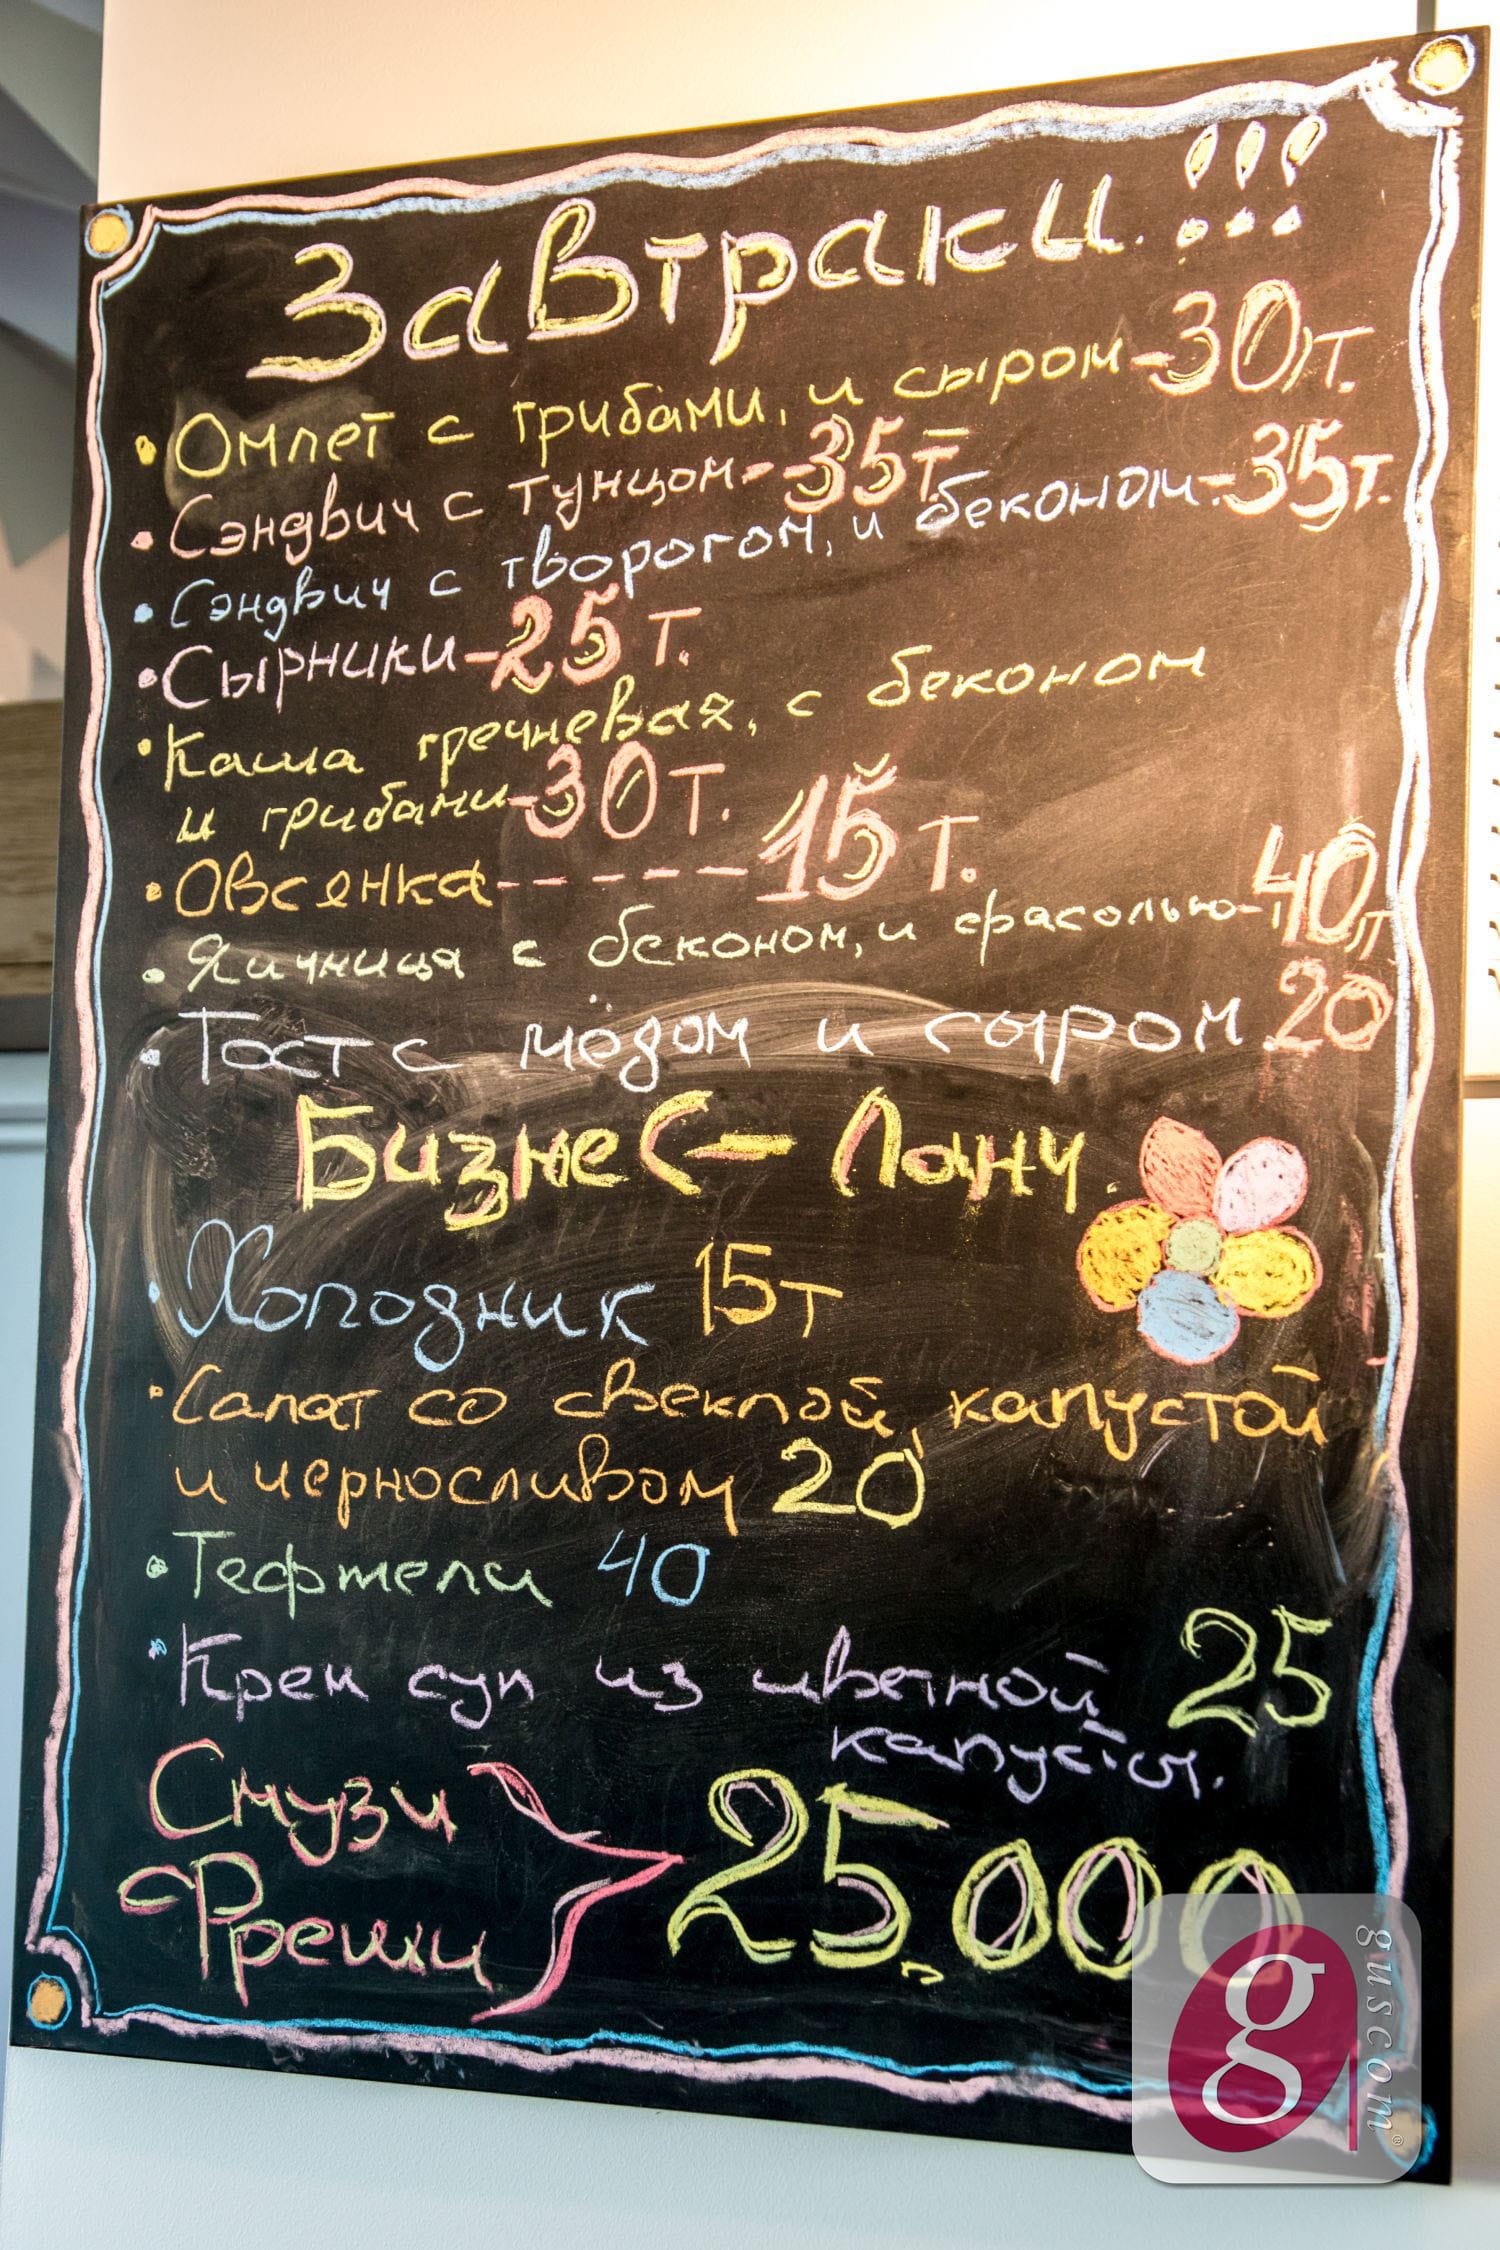 Завтраки!!!
• Омлет с грибами, и сыром - 30т.
• Сэндвич с тунцом - 35т
• Сэндвич с творогом, и беконом - 35т.
• Сырники - 25 т.
• Каша гречневая, с беконом
и грибами - 30 т.
• Овсянка ------ 15 т.
• Яичница с беконом, и фрасолью - 40т
• Тост с мёдом и сыром 20
Бизнес - Ланч.
• Холодник 15т
• Салат со свеклой, капустой
и черносливом 20
• Тефтели 40
• Крем суп из цветной 25
капусты.
Смузи
Фреши
25.000
g guscom®